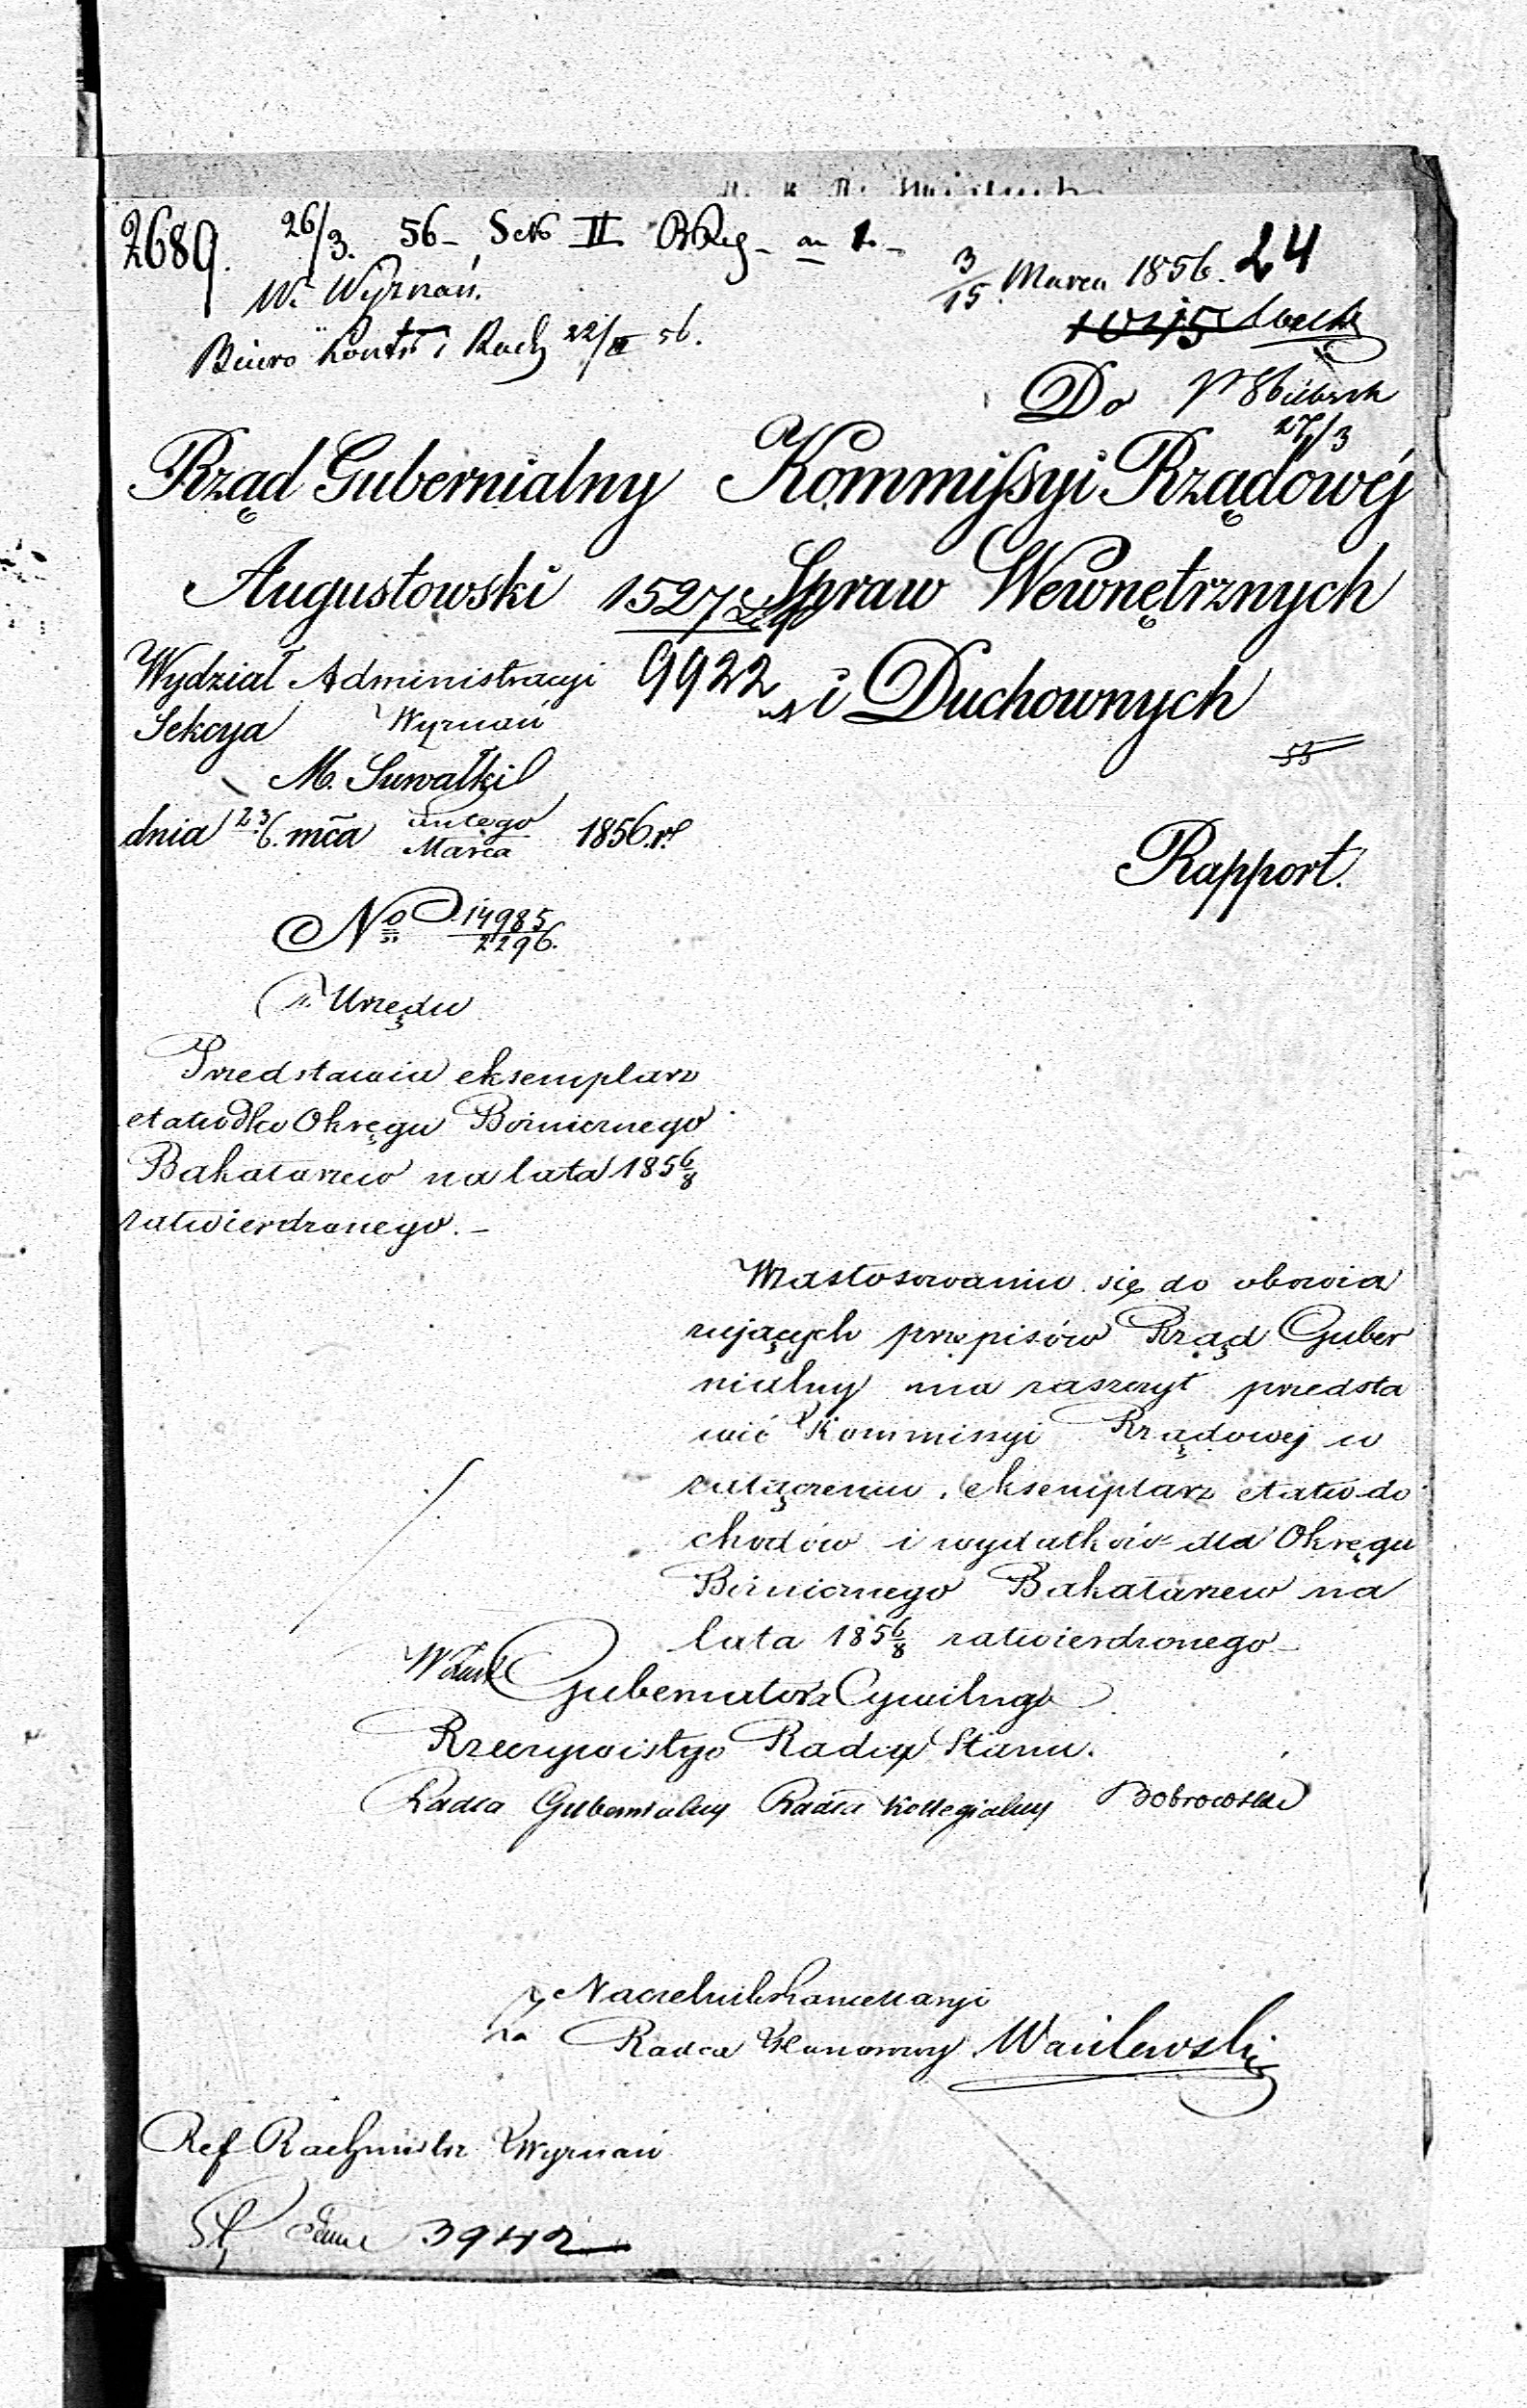 2689. 26/3. 56 – II
W. Wyznań.
Biuro Kontr i Rach 22/III 56.
3/15 Marca 1856. 24
Do
27/3
Rząd Gubernialny
Augustowski
Kommissyi Rządowéj
Spraw Wewnętrznych
i Duchownych
1527
9922
Wydział Administracyi
Sekcya Wyznań
M. Suwałki
dnia 23/6. mca Lutego/Marca 1856. r.
53
Rapport.
No 14985/2296.
z Urzędu
Przedstawia eksemplarz
etatu dla Okręgu Bożnicznego
Bakałarzew na lata 1856/8
zatwierdzonego. –
W zastosowaniu się do obowią
zujących przepisów Rząd Guber
nialny ma zaszczyt przedsta
wić Kommissyi Rządowej w
załączeniu eksemplarz etatu do
chodów i wydatków dla Okręgu
Bożnicznego Bakałarzew na
lata 1856/8 zatwierdzonego –
W zast. Gubernatora Cywilnego
Rzeczywistego Radcy Stanu.
Radca Gubernialny Radca Kollegialny Dobrowolski
za Naczelnik Kancellaryi
Radca Honorowy Wasilewski
Ref Rachmistrz Wyznań
3942